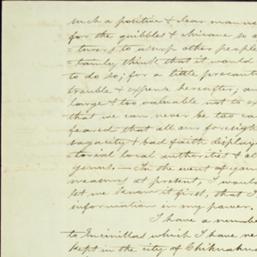 such a positive & clear manner
for the quibbles & chicane so a
turns to usurp other people
tainly think that it would
to do so; for a little precaut
trouble & expense hereafter, an
large & too valuable not to ex
that we can never be too ca
feared that all our foresigh
sagacity & bad faith display
torial local authorities & al
genus — In the event of your
measures at present, I would
let me know it first, that I
information in my power.
I have a number
to Encinillas which I have ne
kept in the city of Chihuahua